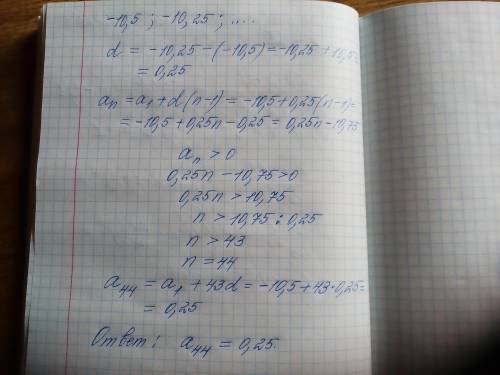 -10,5 ; -10,25 ; ....
d = -10,25 - (-10,5) = -10,25 + 10,5 =
= 0,25
an = a1 + d(n-1) = -10,5 + 0,25(n-1) =
= -10,5 + 0,25n - 0,25 = 0,25n - 10,75
an > 0
0,25n - 10,75 > 0
0,25n > 10,75
n > 10,75 : 0,25
n > 43
n = 44
a44 = a1 + 43d = -10,5 + 43·0,25 =
= 0,25
Ответ: a44 = 0,25.